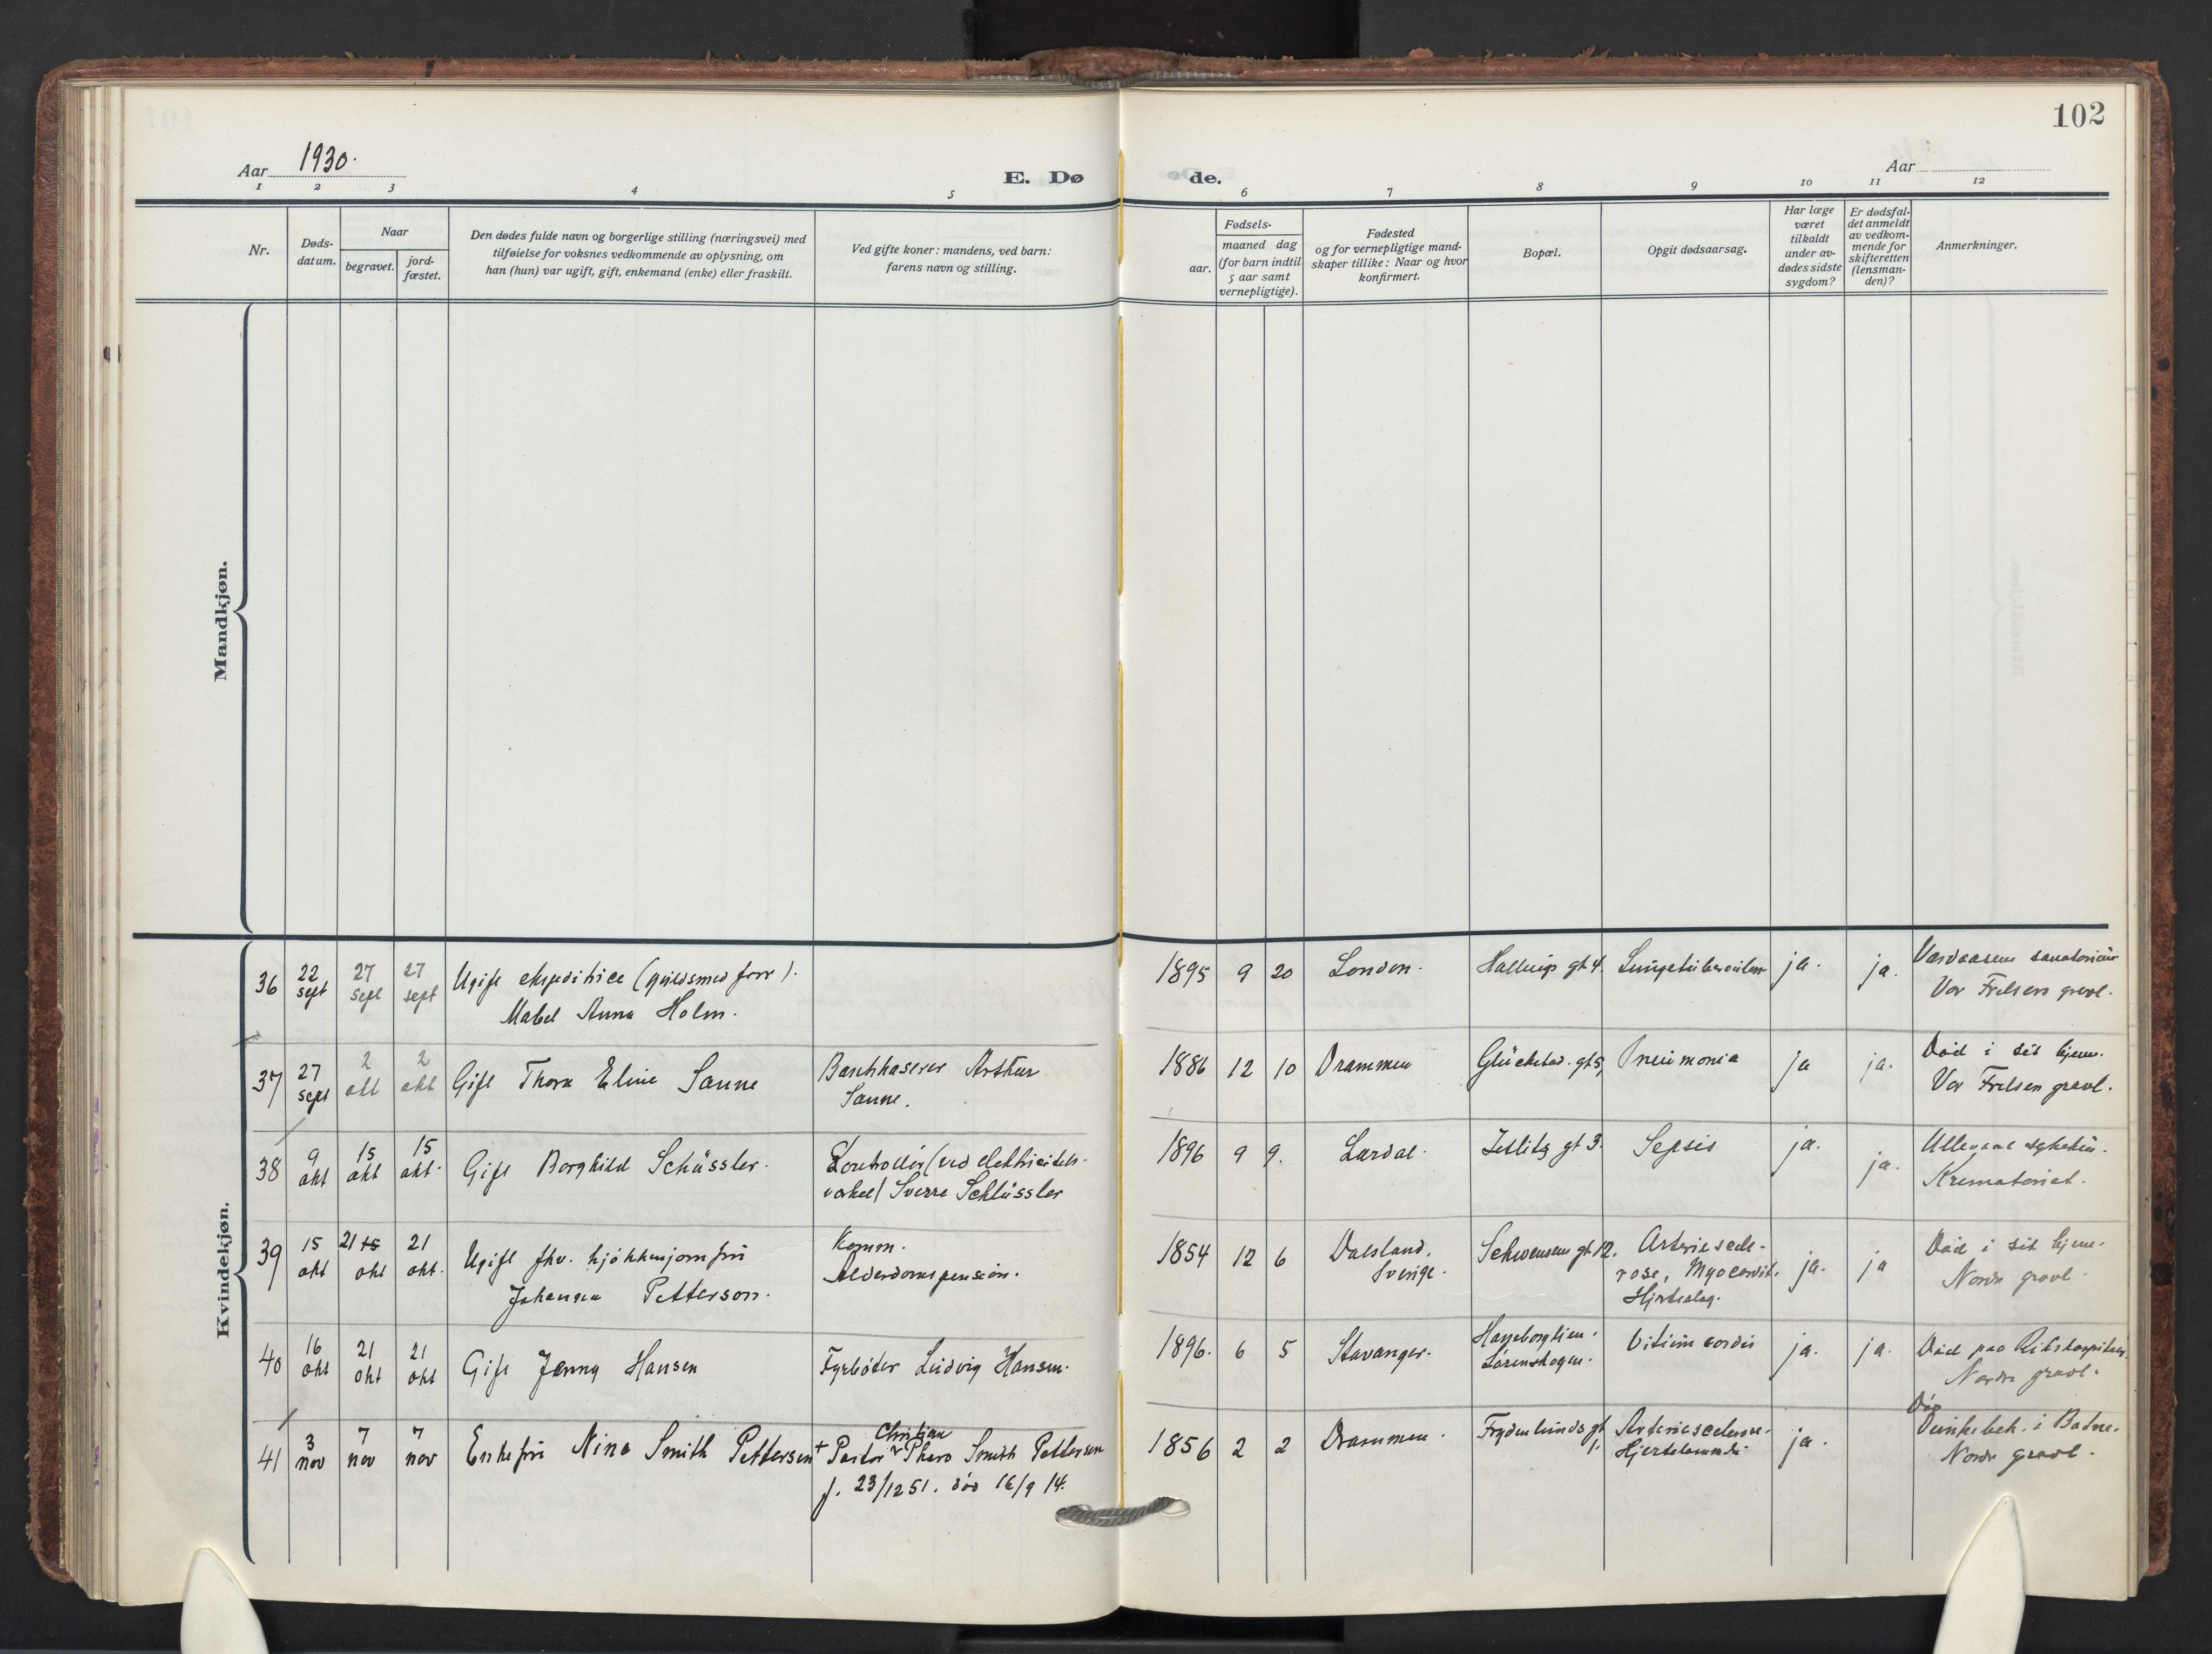 102
Aar 1930.
E. Dø de.
Aar
1 2 3 4 5 6 7 8 9 10 11 12
Nr.
Døds-
datum.
Naar
begravet.
jord-
fæstet.
Den dødes fulde navn og borgerlige stilling (næringsvei) med
tilføielse for voksnes vedkommende av oplysning, om
han (hun) var ugift, gift, enkemand (enke) eller fraskilt.
Ved gifte koner: mandens, ved barn:
farens navn og stilling.
Fødsels-
aar.
maaned dag
(for barn indtil
5 aar samt
vernepligtige).
Fødested
og for vernepligtige mand-
skaper tillike: Naar og hvor
konfirmert.
Bopæl.
Opgit dødsaarsag.
Har læge
været
tilkaldt
under av-
dødes sidste
sygdom?
Er dødsfal-
det anmeldt
av vedkom-
mende for
skifteretten
(lensman-
den)?
Anmerkninger.
Mandkjøn.
Kvindekjøn.
36 22 sept 27 sept 27 sept
Ugift ekspeditrice (guldsmed forr).
Mabel Anna Holm.
1895 9 20 London. Hallings gt 4. Lungetuberculose ja. ja.
Vardaasen sanatorium
Vor Frelsers gravl.
37 27 sept 2 okt 2 okt
Gift Thora Eline Sanne
Bankkaserer Arthur
Sanne.
1886 12 10 Drammen Glückstad. gt 5, Pneumonia ja ja.
Død i sit hjem.
Vor Frelsers gravl.
38 9 okt 15 okt 15 okt.
Gift Borghild Schüssler.
Kontrollør (ved elektricitets-
verket) Sverre Schlüssler
1896 9 9. Lardal. Jetlitz gt 3. Sepsis ja. ja.
Ullevaal sykehus.
Krematoriet.
39 15 okt 21 15 okt 21 okt.
Ugift fhv. kjøkkenjomfru
Johanna Petterson.
Komm.
Alderdomspension.
1854 12 6 Dalsland,
Sverige.
Schwensens gt 12.
Arteriescle-
rose, Myocardit.
Hjerteslag.
ja. ja
Død i sit hjem.
Nordre gravl.
40 16 okt 21 okt 21 okt
Gift Jenny Hansen
Fyrbøter Ludvig Hansen.
1896. 6 5 Stavanger.
Haneborglien.
Lørenskogen.
Vitium cordis ja. ja.
Død paa Rikshospitalet.
Nordre gravl.
41 3 nov 7 nov 7 nov
Enkefru Nina Smith Pettersen
+ Pastor Christian Pharo Smith Pettersen
f. 23/12 51. død 16/9 14.
1856 2 2 Drammen. Frydenlunds gt
1.
Arteriesclerose.
Hjertelammelse
ja.
Død
i Bærum.
Nordre gravl.